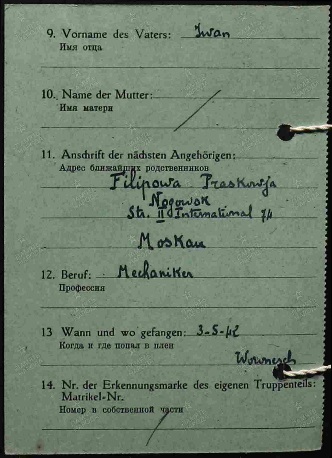 9. Vorname des Vaters: Iwan
Имя отца
10. Name der Mutter:
Имя матери
11. Anschrift der nächsten Angehörigen:
Адрес ближайших родственников
Filipowa Praskowja
Nogowsk
Str. II International 74
Moskau
12. Beruf: Mechaniker
Профессия
13 Wann und wo gefangen: 3-5-42
Когда и где попал в плен
14. Nr. der Erkennungsmarke des eigenen Truppenteils:
Matrikel-Nr.
Номер в собственной части